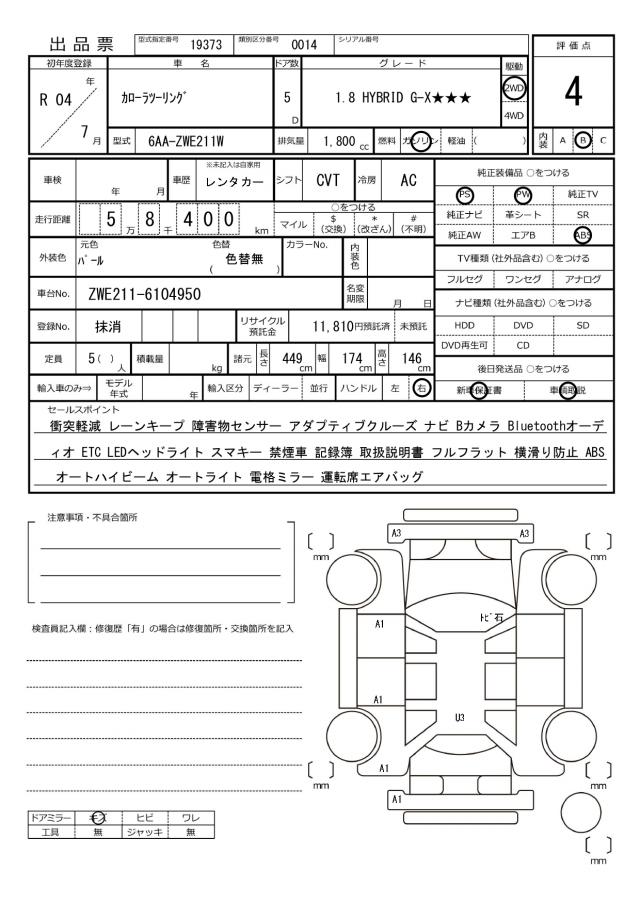 出品票
型式指定番号 19373 類別区分番号 0014 シリアル番号
評価点
4
初年度登録 車名 ドア数 グレード 駆動
R 04 年 7 月
カローラツーリング
5 D
1.8 HYBRID G-X★★★
2WD
4WD
型式 6AA-ZWE211W 排気量 1,800 cc 燃料 ガソリン 軽油 ( )
内装 A B C
車検 年 月 車歴 ※未記入は自家用 レンタカー シフト CVT 冷房 AC
走行距離 5 万 8 千 4 0 0 km
○をつける
マイル $ (交換) * (改ざん) # (不明)
外装色 元色 パール 色替 ( 色替無 ) カラーNo. 内装色
車台No. ZWE211-6104950 名変期限 月 日
登録No. 抹消 リサイクル預託金 11,810円預託済 未預託
定員 5 ( ) 人 積載量 kg 諸元 長さ 449 cm 幅 174 cm 高さ 146 cm
輸入車のみ⇒ モデル年式 年 輸入区分 ディーラー 並行 ハンドル 左 右
純正装備品 ○をつける
PS PW 純正TV
純正ナビ 革シート SR
純正AW エアB ABS
TV種類 (社外品含む) ○をつける
フルセグ ワンセグ アナログ
ナビ種類 (社外品含む) ○をつける
HDD DVD SD
DVD再生可 CD
後日発送品 ○をつける
新車保証書 車輌取説
セールスポイント
衝突軽減 レーンキープ 障害物センサー アダプティブクルーズ ナビ Bカメラ Bluetoothオーデ
ィオ ETC LEDヘッドライト スマキー 禁煙車 記録簿 取扱説明書 フルフラット 横滑り防止 ABS
オートハイビーム オートライト 電格ミラー 運転席エアバッグ
注意事項・不具合箇所
検査員記入欄：修復歴「有」の場合は修復箇所・交換箇所を記入
A3 A3
mm mm
トビ石
A1
A1
U3
A1
mm mm
A1
mm
ドアミラー キズ ヒビ ワレ
工具 無 ジャッキ 無